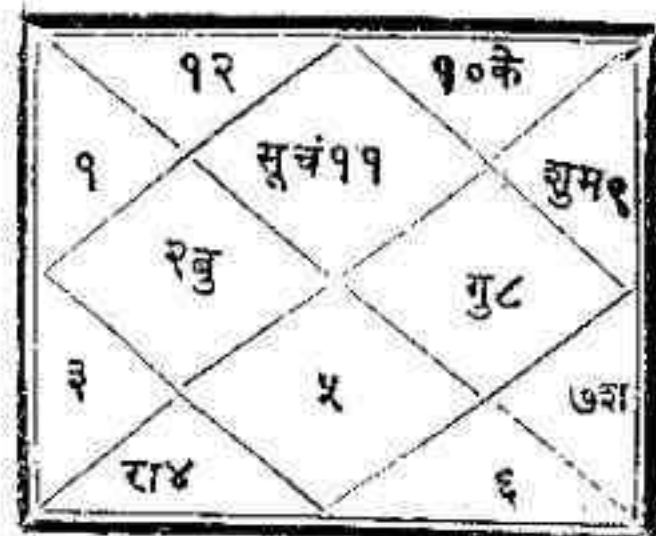 १२ १०के
१ सूचं११ शुम९
२बु गु८
३ ५ ७श
रा४ ६